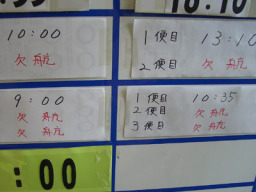 10:00
欠航
1便目 13:10
2便目 欠航
9:00
欠航
欠航
1便目 10:35
2便目 欠航
3便目 欠航
:00